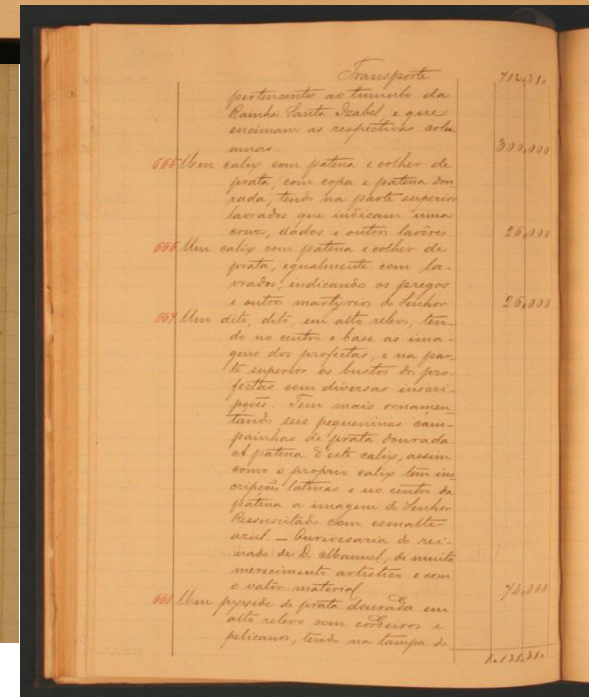 Transporte 712,380
pertencentes ao tumulo da
Rainha Santa Izabel e que
encimam as respectivas colu
mnas. 300,000
665 Um calix com patena e colher de
prata, com copa e patena dou
rada, tendo na parte superior
lavrados que indicam uma
cruz, dados e outros lavôres. 26,000
666 Um calix com patena e colher de
prata, egualmente com la-
vrados, indicando os pregos
e outros martyrios do Senhor 26,000
667 Um dito, dito, em alto relevo, ten-
do no centro e base as ima-
gens dos profetas, e na par-
te superior os bustos dos pro-
fectas com diversas inscri-
pções. Tem mais ornamen
tando seis pequeninas cam-
painhas de prata dourada.
A patena d'este calix, assim
como o proprio calix tem ins
cripções latinas e no centro da
patena a imagem do Senhor
Ressuscitado com esmalte
azul. — Ourivesaria do rei-
nado de D. Manuel, de muito
merecimento artistico e com
o valor material 72,000
668 Uma pyxide de prata dourada em
alto relevo com cordeiros e
pelicanos, tendo na tampa do